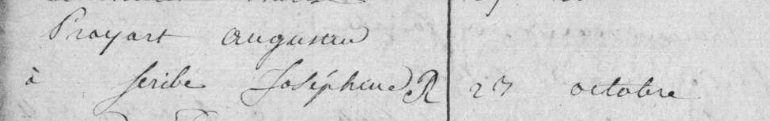 Proyart augustin
à scribe Joséphine R 27 octobre